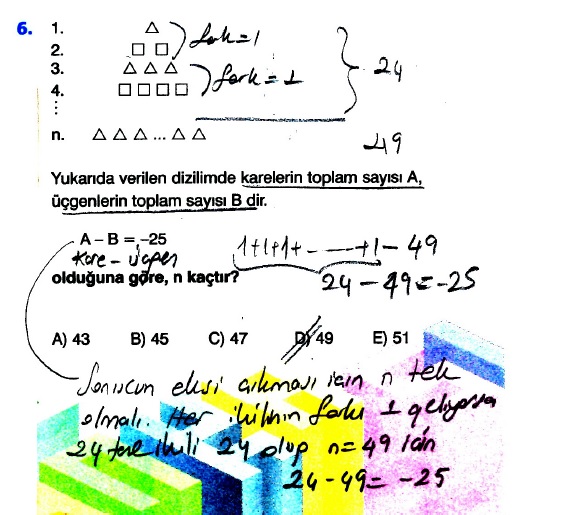 6. 1. △
2. □ □
fark=1
3. △ △ △
4. □ □ □ □
fark = 1
24
⋮
n. △ △ △ ... △ △
49
Yukarıda verilen dizilimde karelerin toplam sayısı A,
üçgenlerin toplam sayısı B dir.
A – B = –25
Kare – üçgen
1+1+1+ - —+1 – 49
olduğuna göre, n kaçtır?
24 – 49 = -25
A) 43 B) 45 C) 47 D) 49 E) 51
Sonucun eksi çıkması için n tek
olmalı. Her ikilinin farkı 1 geliyorsa
24 tane ikili 24 olup n=49 için
24 - 49 = -25